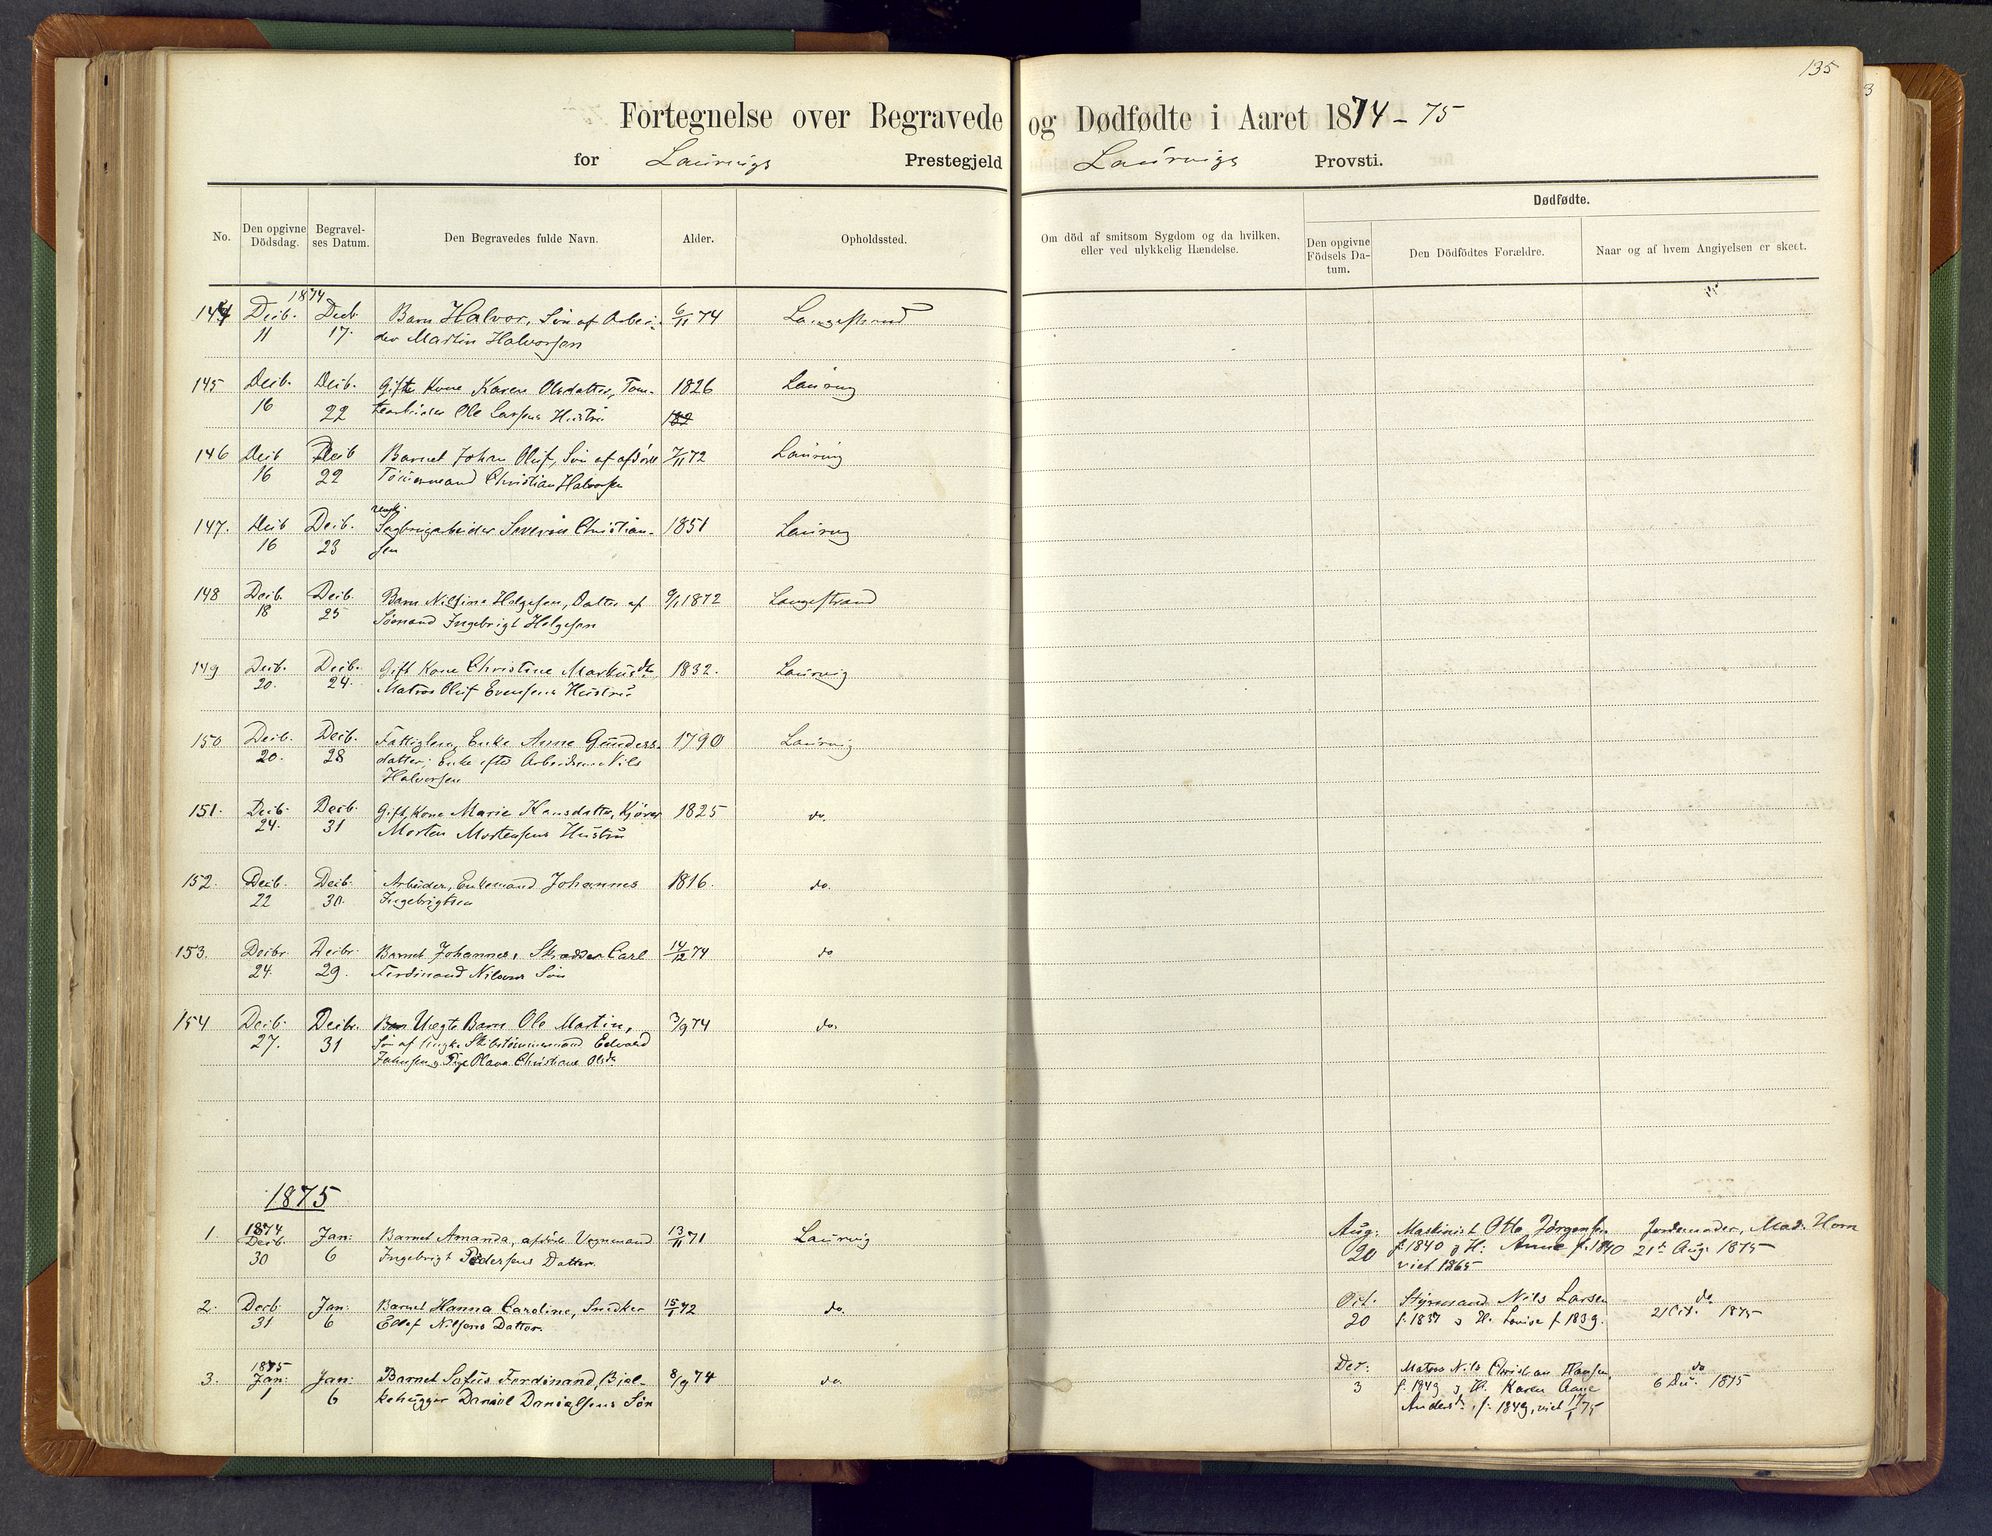 135
3
Fortegnelse over Begravede og Dødfødte i Aaret 1874-75
for Laurvigs Prestegjeld Laurvigs Provsti.
Dødfødte.
No.
Den opgivne Dödsdag.
Begravelses Datum.
Den Begravedes fulde Navn.
Alder.
Opholdssted.
Om död af smitsom Sygdom og da hvilken, eller ved ulykkelig Hændelse.
Den opgivne Födsels Datum.
Den Dödfödtes Forældre.
Naar og af hvem Angivelsen er skeet.
1874
144 Decb. Decb. Barn Halvor, Søn af Arbei- 6/11 74 Langestrand
11 17. der Martin Halvorsen
145 Decb. Decb. Gifte Kone Karen Olsdatter, Tom- 1826 Laurvig
16 22 tearbeider Ole Larsens Hustru
146 Decb Decb Barnet Johan Oluf, Søn af afdøde 7/11 72 Laurvig
16 22 Tømmermand Christian Halvorsen
147. Decb Decb. Sagbrugarbeider Severin Christian- 1851 Laurvig
16 23 sen
148 Decb. Decb. Barn Nilsine Helgesen, Datter af 9/1 1872 Langestrand
18 25 Sømand Ingebrigt Helgesen
149 Decb. Decb. Gift Kone Christine Markusdtr 1832. Laurvig
20. 24. Matros Oluf Evensens Hustru
150 Decb. Decb. Fattiglem, Enke Anne Gunders- 1790 Laurvig
20. 28 datter; Enke efter Arbeidsm. Nils
Halvorsen
151. Decb. Decb. Gift Kone Marie Hansdatter, Kjører 1825 do.
24. 31 Morten Mortensens Hustru
152. Decb. Decb. Arbeider, Enkemand Johannes 1816. do.
22 30. Ingebrigtsen
153. Decbr. Decbr. Barnet Johannes, Skrædder Carl 14/12 74 do
24. 29. Ferdinand Nilsens Søn
154 Decb. Decbr. Uægte Barn Ole Martin, 3/9 74 do.
27. 31 Søn af Ungk. Skibstømmermand Edvard
Johnsen og Pige Olava Christiane Olsdr.
1875
1 1874 Decb. Jan: Barnet Amanda, afdøde Vognmand 13/11 71 Laurvig Aug: Maskinist Otto Jørgensen Jordemoder, Mad. Horn
30 6 Ingebrigt Pedersens Datter. 20 f. 1840 og H: Anne f. 1840 21de Aug. 1875
viet 1865
2. Decb. Jan: Barnet Hanna Caroline, Snedker 15/1 72 do. Oct. Styrmand Nils Larsen do
31 6 Ellef Nilsens Datter. 20 f. 1837 og H. Lovise f. 1839. 21 Oct. 1875
3. 1875 Jan: Jan: Barnet Sofus Ferdinand, Bjel- 8/9 74 do. Dec: Matros Nils Christian Hansen, do
1 6 kehugger Daniel Danielsens Søn 3 f. 1849 og H. Karen Anne 6 Dec. 1875
Andersdr, f. 1849, viet 17/1 75